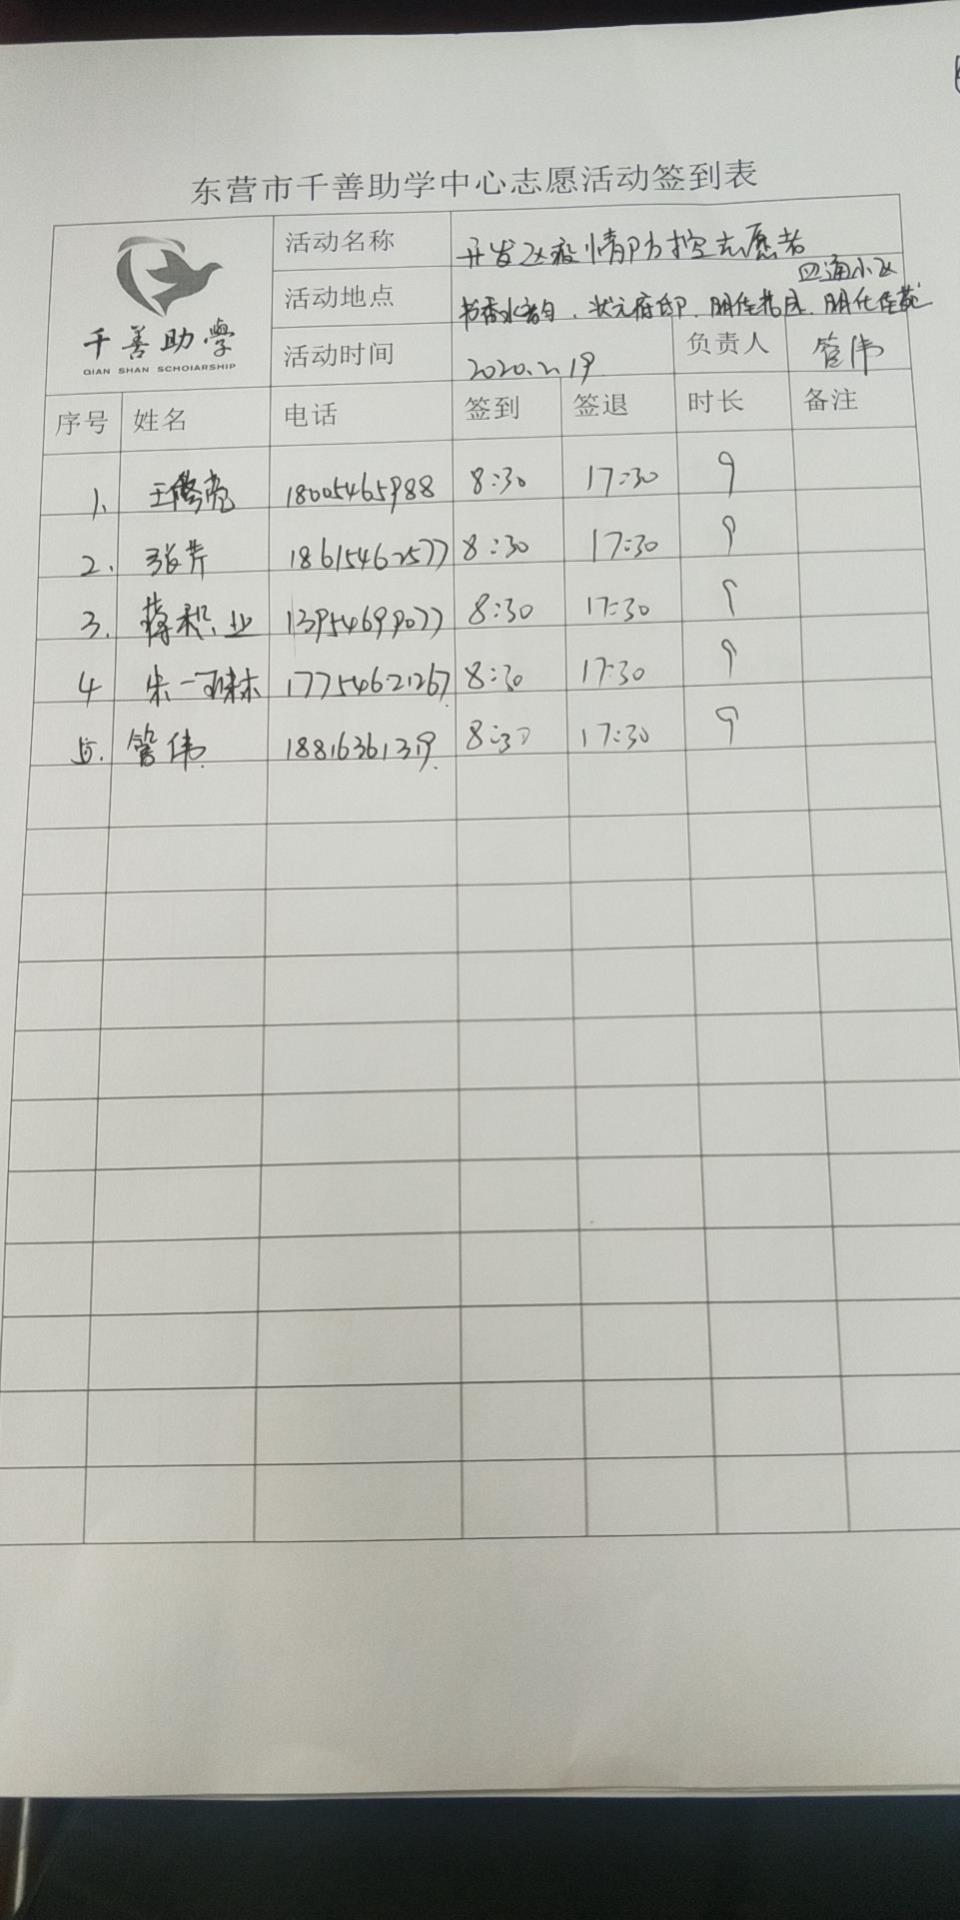 东营市千善助学中心志愿活动签到表
千善助學
QIAN SHAN SCHOLARSHIP
活动名称 开发区疫情防控志愿者
四通小区
活动地点 书香水韵、状元府邸、
活动时间 2020.2.19 负责人 管伟
序号 姓名 电话 签到 签退 时长 备注
1、 王 亮 18005465988 8:30 17:30 9
2、 张芹 18615462577 8:30 17:30 9
3. 蒋积业 13954699077 8:30 17:30 9
4 朱一 17754621267 8:30 17:30 9
5. 管伟 18816361319 8:30 17:30 9